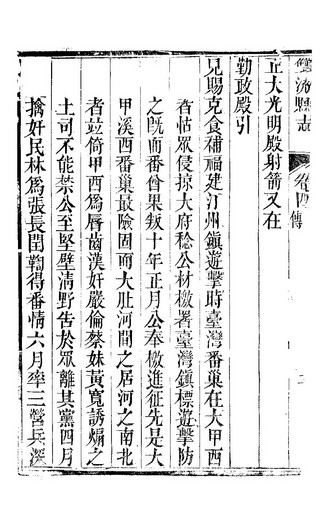 雙流縣志 卷四 傳
正大光明殿射箭又在
勤政殿引
見賜克食補福建汀州鎮遊擊時臺灣番巢在大甲西
者怙眾侵掠大府稔公材檄署臺灣鎮標遊擊防
之旣而番酋果叛十年正月公奉檄進征先是大
甲溪西番巢最險固而大肚河間之居河之南北
者竝倚甲西爲唇齒漢奸嚴倫蔡妹黃寬誘煽之
土司不能禁公至堅壁清野告於眾離其黨四月
擒奸民林爲張長閏鞫得番情六月率三營兵深